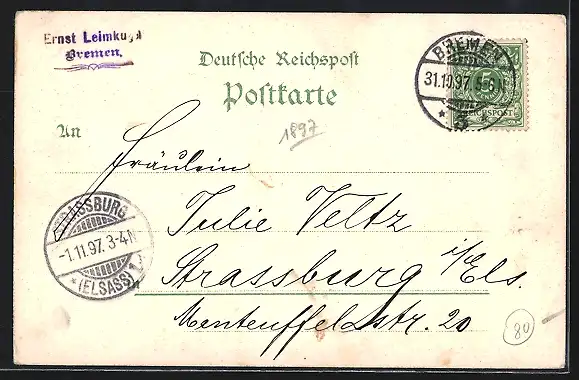 Ernst Leimkugel
Bremen.
Deutsche Reichspost
Postkarte
BREMEN
31.10.97. 5-6N
* 3
5
REICHSPOST
1897
An
Fräulein
Julie Veltz
Strassburg i/Els.
Manteuffelstr. 20
STRASSBURG
-1.11.97. 3-4N
* (ELSASS) 1
80